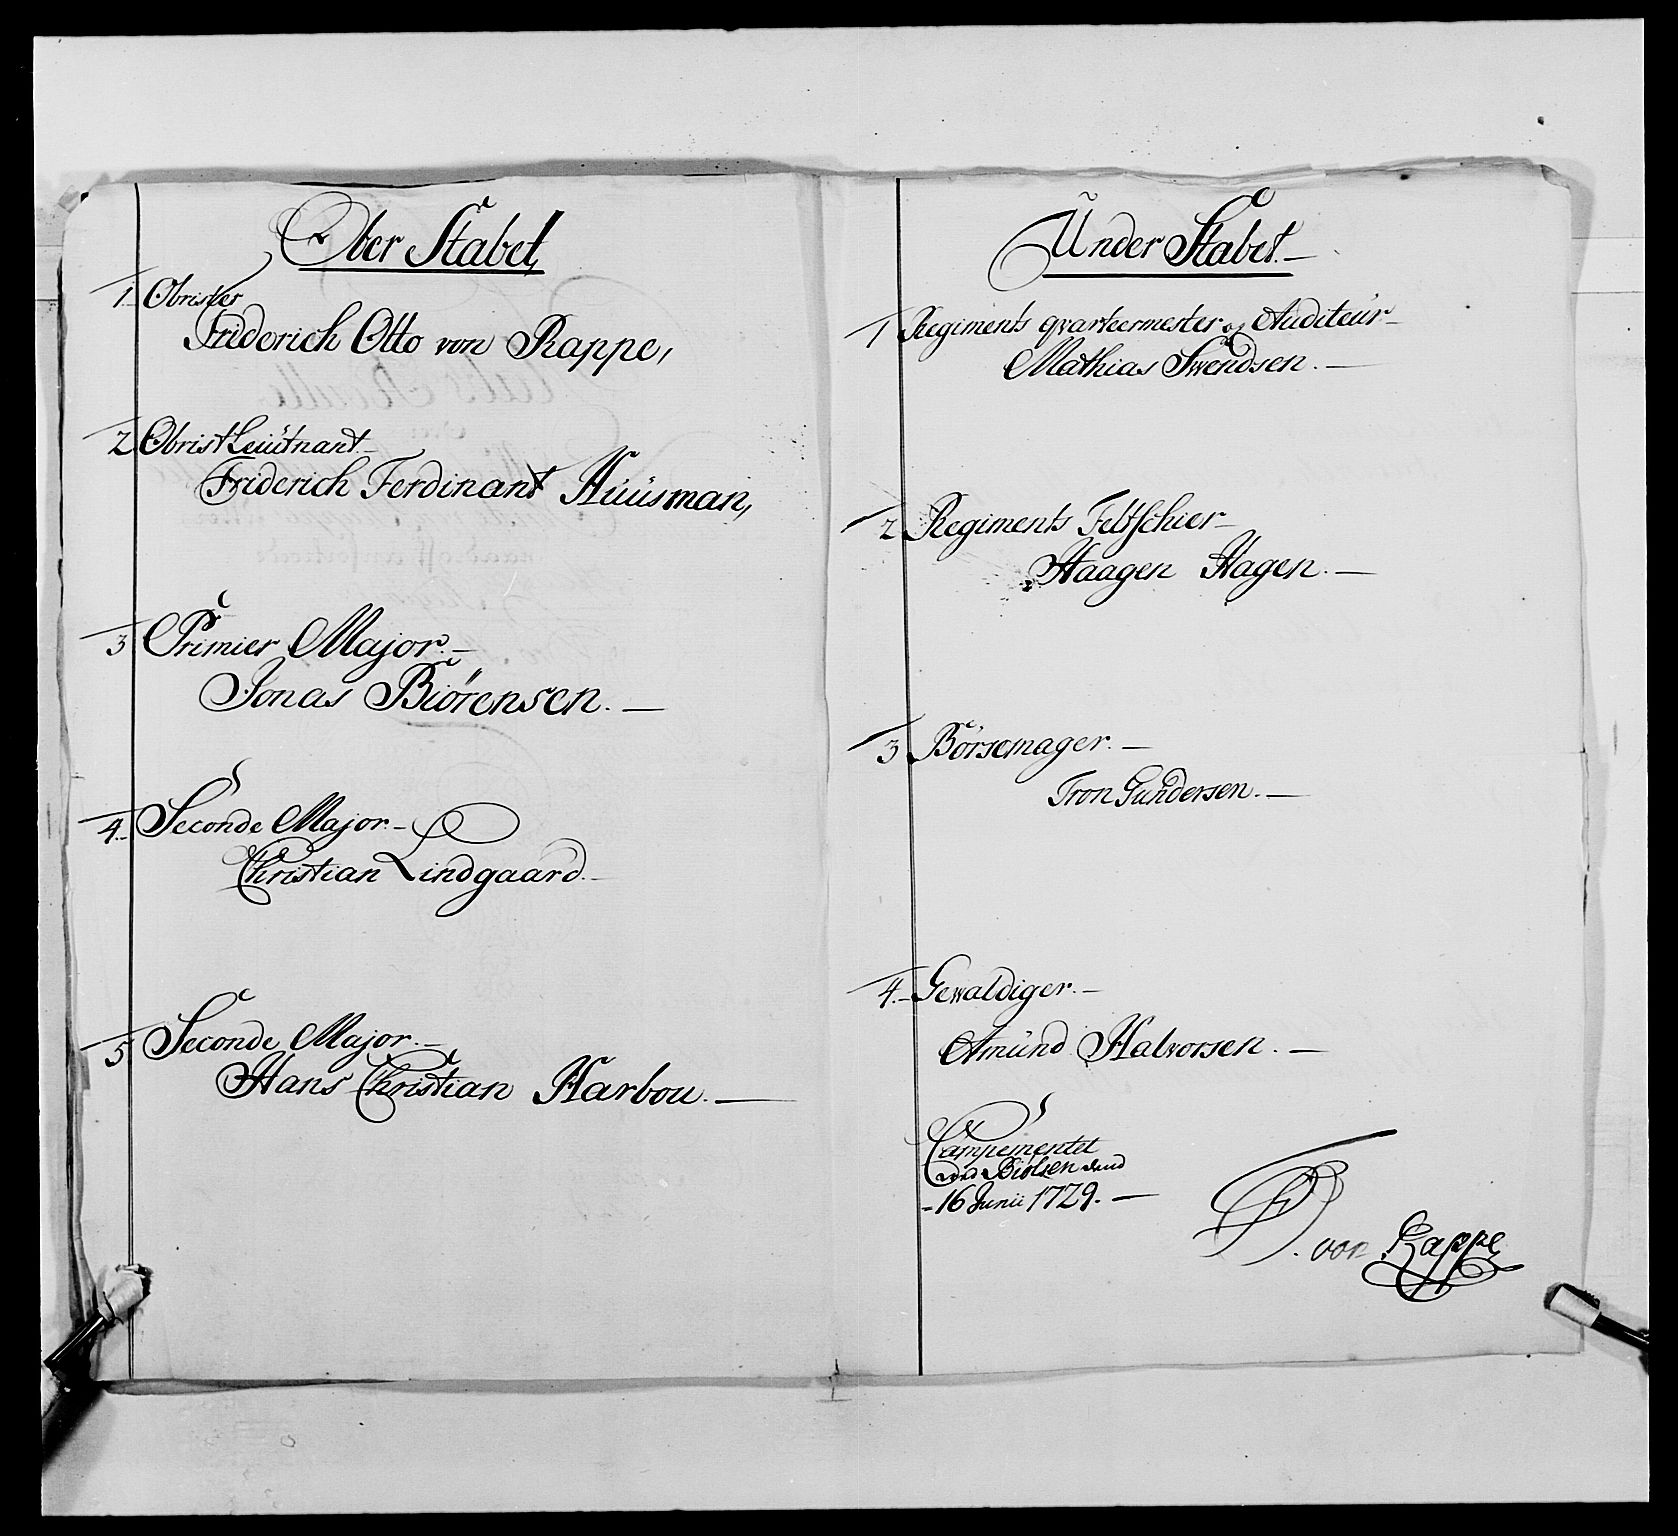 Ober Stabet,
1. Obrister
Friderich Otto von Rappe,
2 Obrist Leutnant
Friderich Ferdinant Huusman,
3 Primier Major. –
Jonas Biörensen. –
4. Seconde Major. –
Christian Lindgaard. –
5 Seconde Major. –
Hans Christian Harbou. –
Under Stabet. –
1 Regiments qvarteermester og Auditeur –
Mathias Swendsen. –
2 Regiments Feltschier –
Haagen Hagen. –
3 Börsemager. –
Tron Gundersen. –
4. – Gewaldiger. –
Amund Halvorsen. –
Campementet
ved Biölsen dend
- 16 Junii 1729. –
von Rappe